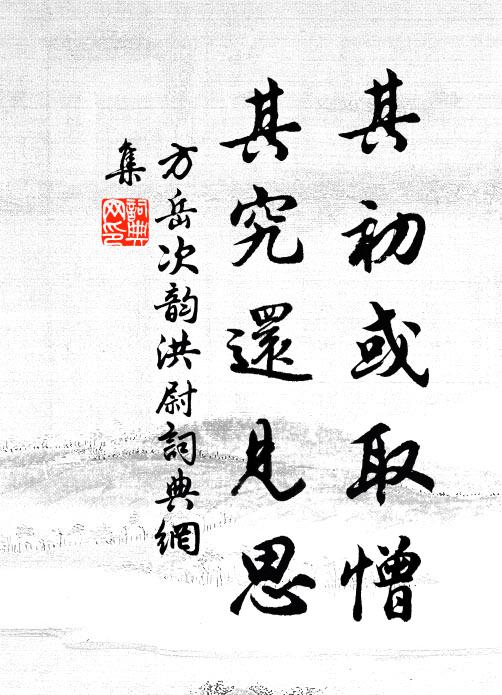 其初或取憎
其究還見思
方岳次韵洪尉詞典網
集
詞典
网印